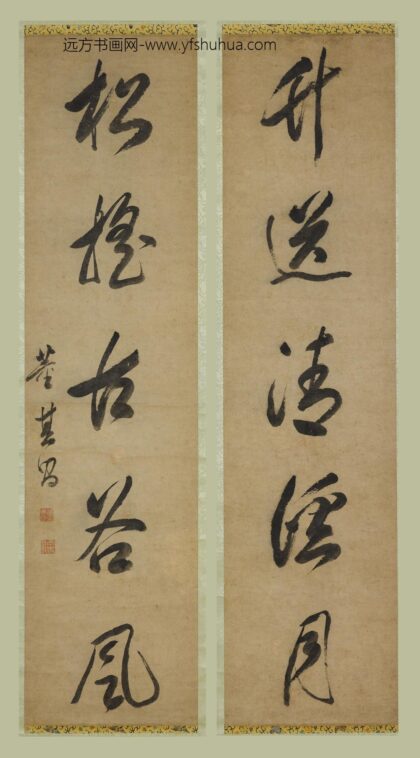 远方书画网-www.yfshuhua.com
竹送清溪月
松搖古谷風
董其昌